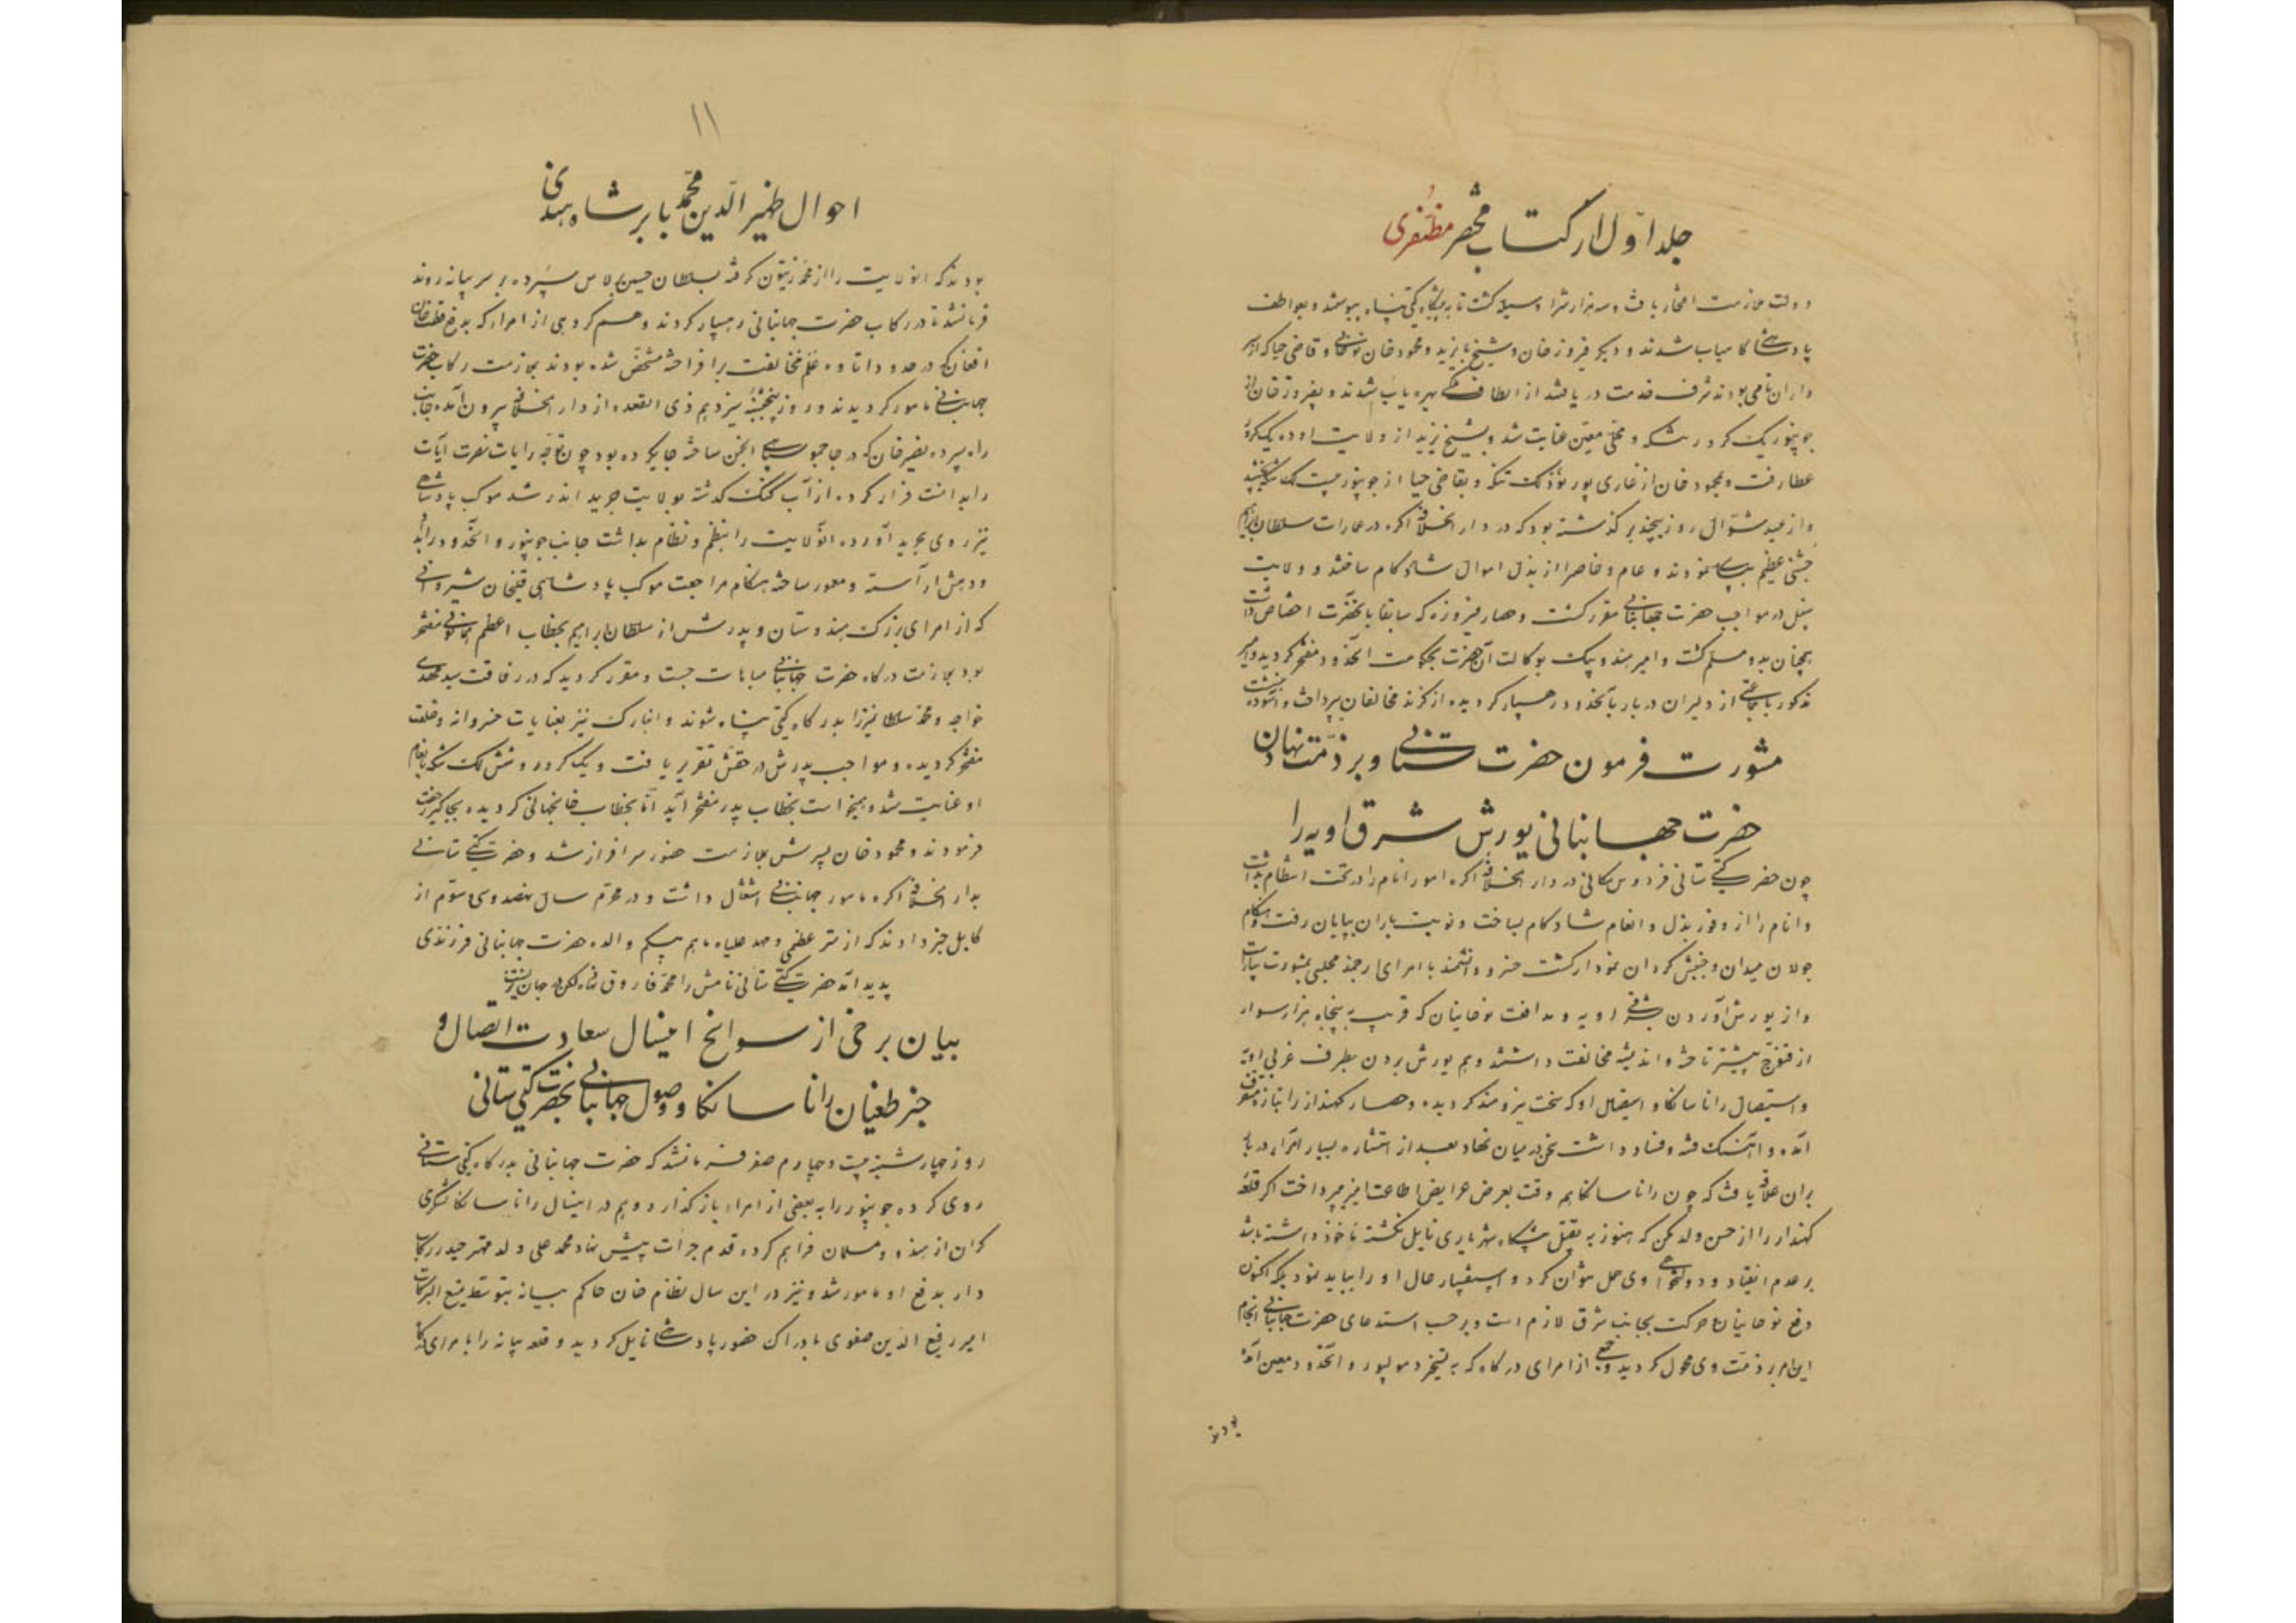 جلد اوّل از کتاب مختصر مظفری
دولت ملازمت افتخار یافت و سه هزار نفر را وسیله گشت تا به پیشگاه گیتی پناه پیوستند و بعواطف
پادشاهی کامیاب شدند و دیگر فیروز خان و شیخ بایزید و محمود خان نوحانی و قاضی جیا که از سر
داران نامی بودند شرف خدمت دریافتند از الطاف بهره یاب شدند و بفیروز خان از
جونپور یک کرور تنکه معین عنایت شد و بشیخ بایزید از ولایت اوده یک کرور
عطا رفت و بمحمود خان از غازی پور نود لک تنکه و بقاضی جیا از جونپور بیست لک
و از عید شوّال روزی چند برگذشته بود که در دار الخلافه اگره در عمارات سلطان ابراهیم
جشنی عظیم بپای نمودند و عام و خاص را از بذل اموال شاد کام ساختند و ولایت
سنبل در مواجب حضرت جهانبانی مقرر گشت و حصار فیروزه که سابقا بانحضرت اختصاص داشت
همچنان بدو مسلم گشت و امیر هندو بیک بوکالت آن حضرت بحکومت آنحدود مفتخر گردید و امیر
مذکور با جماعتی از دلیران دربار بآنحدود رهسپار گردیده از گزند مخالفان بپرداخت و آسوده بنشست
مشورت فرمودن حضرت ستانی و بر ذمّت نهادن
حضرت جهانبانی یورش شرق رویه را
چون حضرت گیتی ستانی فردوس مکانی در دار الخلافه اگره امور انام را در تحت انتظام بداشت
و انام را از وفور بذل و انعام شاد کام بساخت و نوبت باران بپایان رفت و هنگام
جولان میدان و جنبش گردان نمودار گشت خسرو دانشمند با امرای ارجمند مجلس مشورت بیاراست
و از یورش آوردن شرق رویه و مدافعت نوحانیان که قریب به پنجاه هزار سوار
از قنوج پیشتر تاخته و اندیشه مخالفت داشتند و هم یورش بردن بطرف غربی رویه
و استیصال رانا سانکا و استیصال او که سخت نیرومند گردیده و حصار کهندار را بتازه متصرف
آمده و آهنگ فتنه و فساد داشت سخن در میان نهاد بعد از استشاره بسیار امرای دربار
بران علاقه یافت که چون رانا سانکا هم وقت بعرض عرایض اطاعت آمیز می پرداخت اگر قلعه
کهندار را از حسن ولد مکن که هنوز به تقبیل پیشگاه شهریاری نایل نگشته ماخوذ داشته باشد
بر عدم انقیاد و دولتخواهی وی حمل نتوان کرد و استفسار حال او را بباید نمود بلکه اکنون
دفع نوحانیان و حرکت بجانب شرق لازم است و بر حسب استدعای حضرت جهانبانی انجام
این امر بر ذمّت وی محول گردید و جمعی از امرای درگاه که به تسخیر دهولپور و آنحدود معین آمده
بودند
۱۱
احوال ظهیر الدّین محمّد بابر شاه هندی
بودند که آنولایت را از محمد زیتون گرفته بسلطان جنید برلاس سپرده بر سر بیانه روند
فرمان شد تا در رکاب حضرت جهانبانی رهسپار گردند و هم گروهی از امرا که بدفع قطب خان
افغان که در حدود اتاوه علم مخالفت برافراخته مشخص شده بودند بملازمت رکاب حضرت
جهانبانی مامور گردیدند و روز پنجشنبه سیزدهم ذی القعده از دار الخلافه بیرون آمده جانب
راه سپرده نصیر خان که در جاجمو سپاهی انجمن ساخته جایگیر ده بود چون توجه رایات نصرت آیات
را بدانست فرار کرده از آب گنگ گذشته بولایت خرید اندر شد موکب پادشاهی
نیز روی بخرید آورده آنولایت را بنظم و نظام بداشت جانب جونپور و آنحدود راند
و دهش آراسته و معمور ساخته هنگام مراجعت موکب پادشاهی فتحخان شیروانی
که از امرای بزرگ هندوستان و پدرش از سلطان ابراهیم بخطاب اعظم همایونی مفتخر
بود بملازمت درگاه حضرت جهانبانی مباهات جست و مقرر گردید که در رفاقت سید مهدی
خواجه و محمد سلطان میرزا بدرگاه گیتی پناه شوند و انبارک نیز بعنایات خسروانه و خلعت
مفتخر گردیده و مواجب پدرش در حقش تقریر یافت و یک کرور و شش لک تنکه بانعام
او عنایت شد و همیخواست بخطاب پدر مفتخر آید امّا بخطاب خانجهانی گردیده بجاگیر رخصت
فرمودند و محمود خان پسرش بملازمت حضور سرافراز شد و حضرت گیتی ستانی
بدار الخلافه اگره بامور جهانبانی اشتغال داشت و در محرّم سال نهصد و سی و سوّم از
کابل خبر دادند که از ستر عظمی و مهد علیاء ماهم بیگم والده حضرت جهانبانی فرزندی
پدید آمد حضرت گیتی ستانی نامش را محمد فاروق نهاد لکن در جهان نزیست
بیان برخی از سوانح اینسال سعادت اتصال و
خبر طغیان رانا سانکا و وصول جهانبانی بحضرت گیتی ستانی
روز چهار شنبه بیست و چهارم صفر فرمان شد که حضرت جهانبانی بدرگاه گیتی ستانی
روی کرده جونپور را به بعضی از امراء بازگذارد و هم در اینسال رانا سانکا لشکری
گران از هندو و مسلمان فراهم کرده قدم جرأت پیش نهاد محمد علی ولد مهتر حیدر رکاب
دار بدفع او مامور شد و نیز در این سال نظام خان حاکم بیانه بتوسط منبع البرکات
امیر رفیع الدّین صفوی بادراک حضور پادشاهی نایل گردید و قلعه بیانه را بامرای درگاه